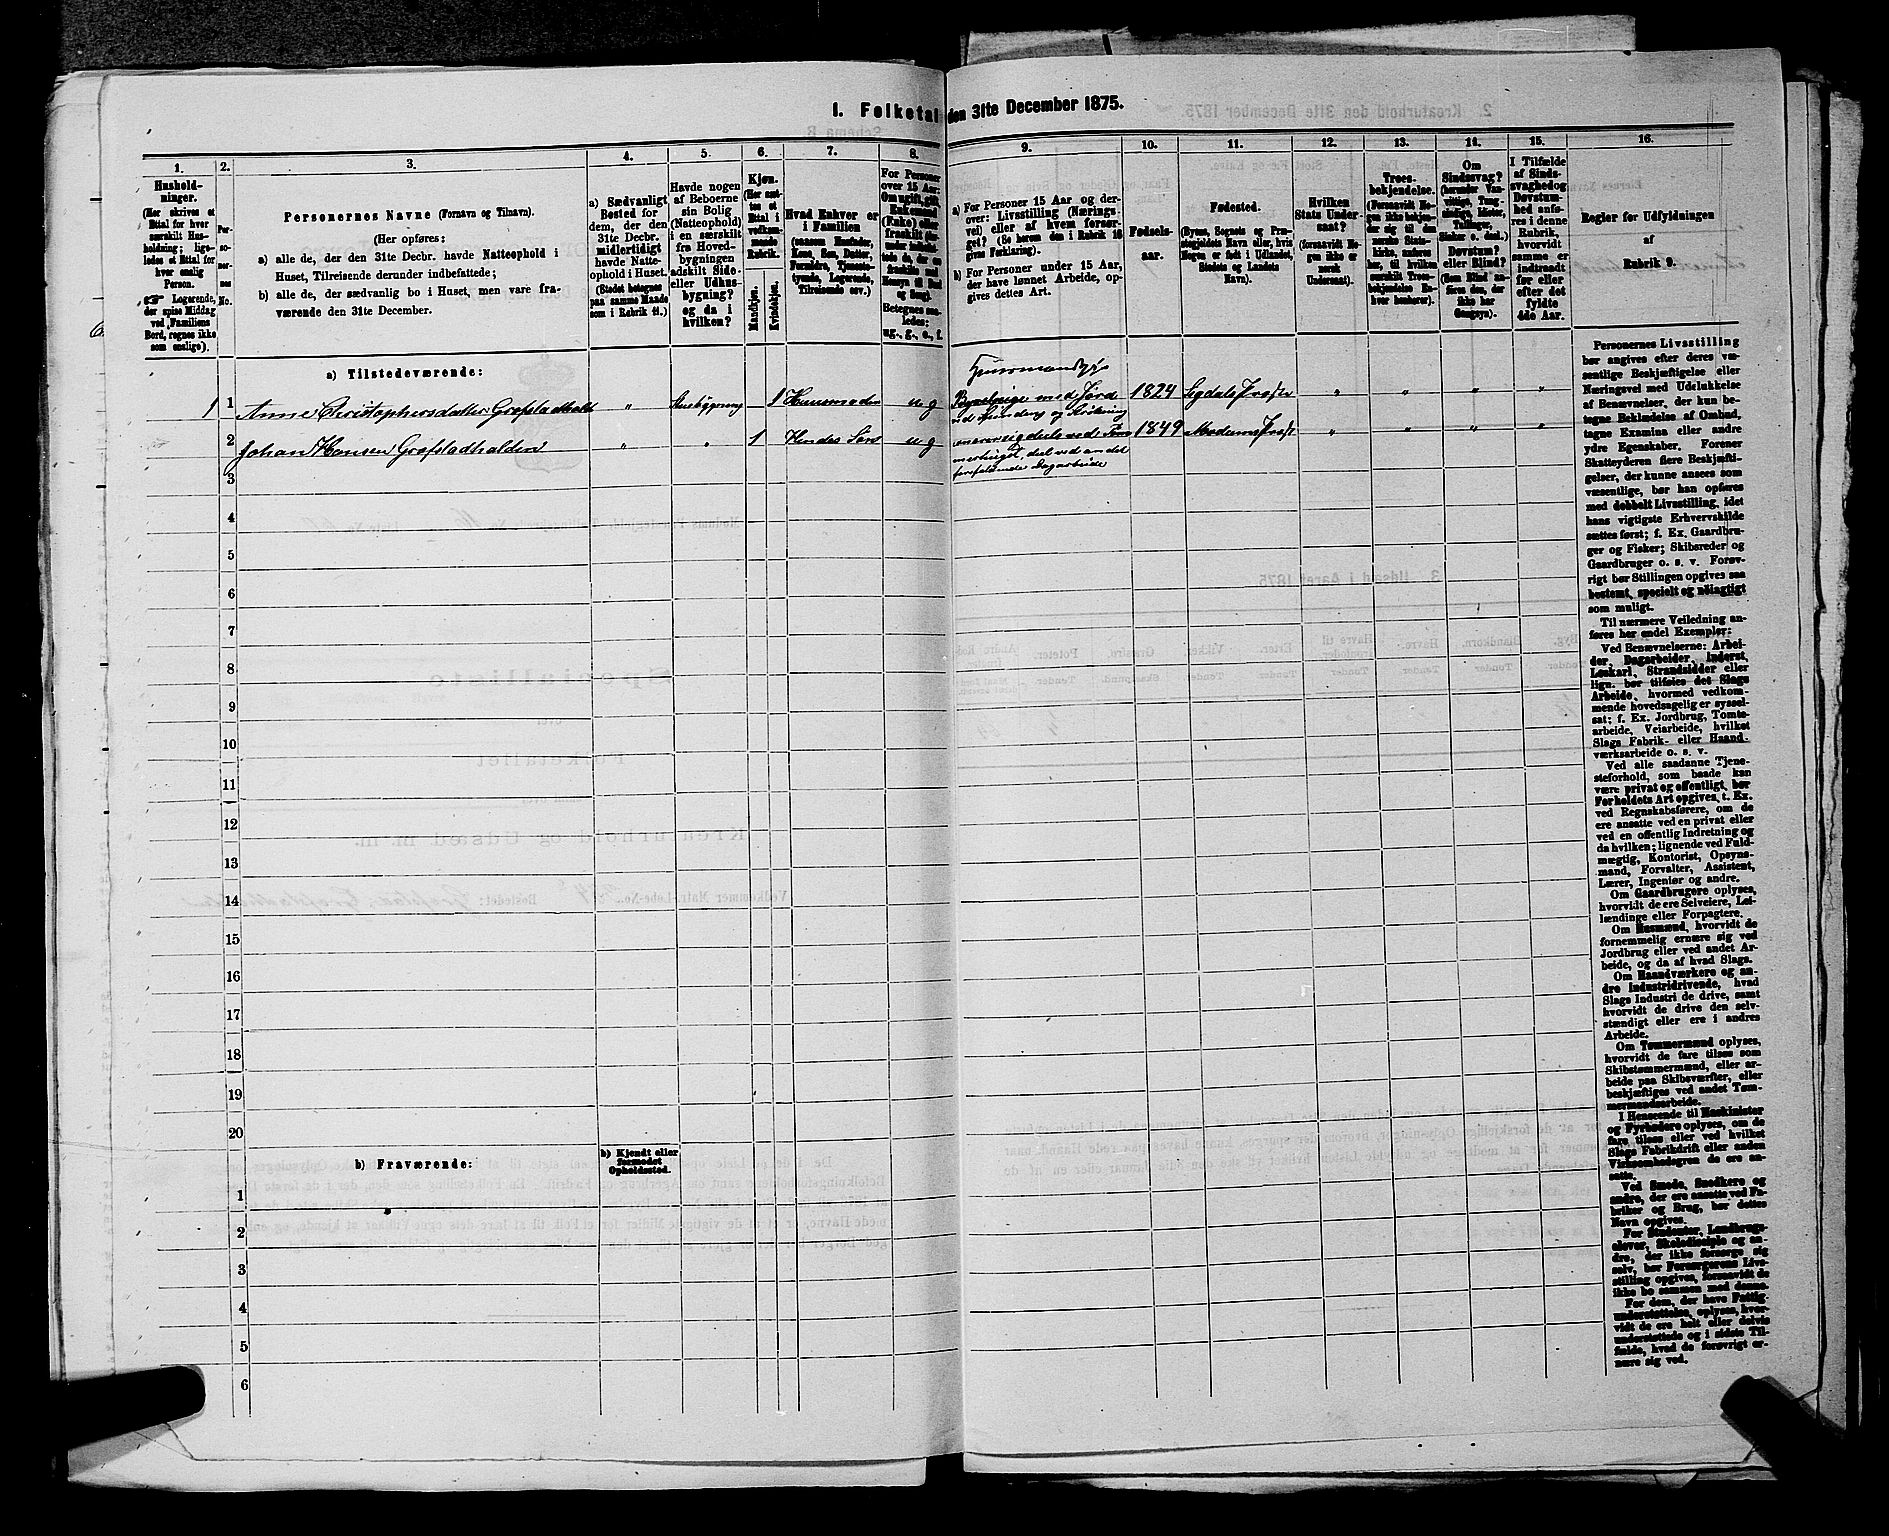 I. Folketal den 31te December 1875.
1.
2.
3.
4.
5.
6.
7.
8.
9.
10.
11.
12.
13.
14.
15.
16.
Hushold-
ninger.
(Her skrives et
Ettal for hver
særskilt Hus-
holdning; lige-
ledes et Ettal for
hver enslig
Person.
☞ Logerende,
der spise Middag
ved Familiens
Bord, regnes ikke
som enslige).
Per-
so-
ner-
nes
No.
Personernes Navne (Fornavn og Tilnavn).
(Her opføres:
a) alle de, der den 31te Decbr. havde Natteophold i
Huset, Tilreisende derunder indbefattede;
b) alle de, der sædvanlig bo i Huset, men vare fra-
værende den 31te December.
a) Sædvanligt
Bosted for
dem, der den
31te Decbr.
midlertidigt
havde Natte-
ophold i Huset.
(Stedet betegnes
paa samme Maade
som i Rubrik 11.)
Havde nogen
af Beboerne
sin Bolig
(Natteophold)
i en særskilt
fra Hoved-
bygningen
adskilt Side-
eller Udhus-
bygning?
og da i
hvilken?
Kjøn.
(Her sæt-
tes et
Ettal i
vedkom-
mende
Rubrik.
Mandkjøn.
Kvindekjøn.
Hvad Enhver er
i Familien
(saasom Husfader,
Kone, Søn, Datter,
Forældre, Tjeneste-
tyende, Logerende,
Tilreisende osv.)
For Personer
over 15 Aar:
Om ugift, gift,
Enkemand
(Enke) eller
fraskilt
Betegnes saa-
ledes:
ug., g., e., f.
a) For Personer 15 Aar og der-
over: Livsstilling (Nærings-
vei) eller af hvem forsør-
get? (Se herom den i Rubrik 16
givne Forklaring).
b) For Personer under 15 Aar,
der have lønnet Arbeide, op-
gives dettes Art.
Fødsels-
aar.
Fødested.
(Byens, Sognets og Præ-
stegjeldets Navn eller, hvis
Nogen er født i Udlandet,
Stedets og Landets
Navn).
Hvilken
Stats Under-
saat?
(forsaavidt No-
gen ikke er
norsk
Undersaat).
Troes-
bekjendelse.
(Forsaavidt No-
gen ikke bekjen-
der sig til den
norske Stats-
kirke, anføres
her, til hvilken
særskilt Troes-
bekjendelse En-
hver henhører).
Om
Sindssvag?
(herunder Van-
vittige, Idioter,
Tullinger,
Sinker o. desl.)
Døvstum?
eller Blind?
(Som Blind an-
føres den, der
ikke har
Gangsyn).
I Tilfælde
af Sinds-
svaghed og
Døvstum-
hed anfø-
res i denne
Rubrik,
hvorvidt
samme er
indtraadt
før eller
efter det
fyldte
4de Aar.
Regler for Udfyldningen
af
Rubrik 9.
a) Tilstedeværende:
1 1 Anne Christophersdatter " 1 ug 1824 " " " "
2 Johan Hansen Grøfstadhalden " " 1 Hendes Søn ug 1849 " " " "
3
4
5
6
7
8
9
10
11
12
13
14
15
16
17
18
19
20
b) Fraværende:
b) Kjendt eller
formodet
Opholdssted.
1
2
3
4
5
6
Personernes Livsstilling
bør angives efter deres væ-
sentlige Beskjæftigelse eller
Næringsvei med Udelukkelse
af Benævnelser, der kun be-
tegne Beklædelse af Ombud,
tagne Examina eller andre
ydre Egenskaber. Forener
Skatteyderen flere Beskjæfti-
gelser, der kunne ansees som
væsentlige, bør han opføres
med dobbelt Livsstilling, idet
hans vigtigste Erhvervskilde
sættes først; f. Ex. Gaardbru-
ger og Fisker; Skibsreder og
Gaardbruger o. s. v. Forøv-
rigt bør Stillingen opgives saa
bestemt, specielt og nøiagtigt
som muligt.
Til nærmere Veiledning an-
føres her endel Exempler:
Ved Benævnelserne: Arbei-
der, Dagarbeider, Inderst,
Løskarl, Strandsidder eller
lign. bør tilføies det Slags
Arbeide, hvormed vedkom-
mende hovedsagelig er syssel-
sat; f. Ex. Jordbrug, Tomte-
arbeide, Veiarbeide, hvilket
Slags Fabrik- eller Haand-
værksarbeide o. s. v.
Ved alle saadanne Tjene-
steforhold, som baade kan
være privat og offentligt, bør
Forholdets Art opgives, t. Ex.
ved Regnskabsførere, om de
ere ansatte ved en privat eller
ved en offentlig Indretning og
da hvilken; lignende ved Fuld-
mægtig, Kontorist, Opsyns-
mand, Forvalter, Assistent,
Lærer, Ingeniør og andre.
Om Gaardbrugere oplyses,
hvorvidt de ere Selveiere, Lei-
lændinge eller Forpagtere.
Om Husmænd, hvorvidt de
fornemmelig ernære sig ved
Jordbrug eller ved andet Ar-
beide, og da af hvad Slags.
Om Haandværkere og an-
dre Industridrivende, hvad
Slags Industri de drive, samt
hvorvidt de drive den selv-
stændigt eller ere i andres
Arbeide.
Om Tømmermænd oplyses,
hvorvidt de fare tilsøs som
Skibstømmermænd, eller ar-
beide paa Skibsværfter, eller
beskjæftiges ved andet Tøm-
mermandsarbeide.
I Henseende til Maskinister
og Fyrbødere oplyses, om de
fare tilsøs eller ved hvilket
Slags Fabrikdrift eller anden
Virksomhedsgren de ere an-
satte.
Ved Smede, Snedkere og
andre, der ere ansatte ved Fa-
briker og Brug, bør dettes
Navn opgives.
For Studenter, Landbrugs-
elever, Skoledisciple og an-
dre, der ikke forsørge sig
selv, bør Forsørgerens Livs-
stilling opgives, forsaavidt de
ikke bo sammen med denne.
For dem, der have Fattig-
understøttelse, oplyses, hvor-
vidt de ere helt eller delvis
understøttede og i sidste Til-
fælde, hvad de forøvrigt er-
nære sig ved.